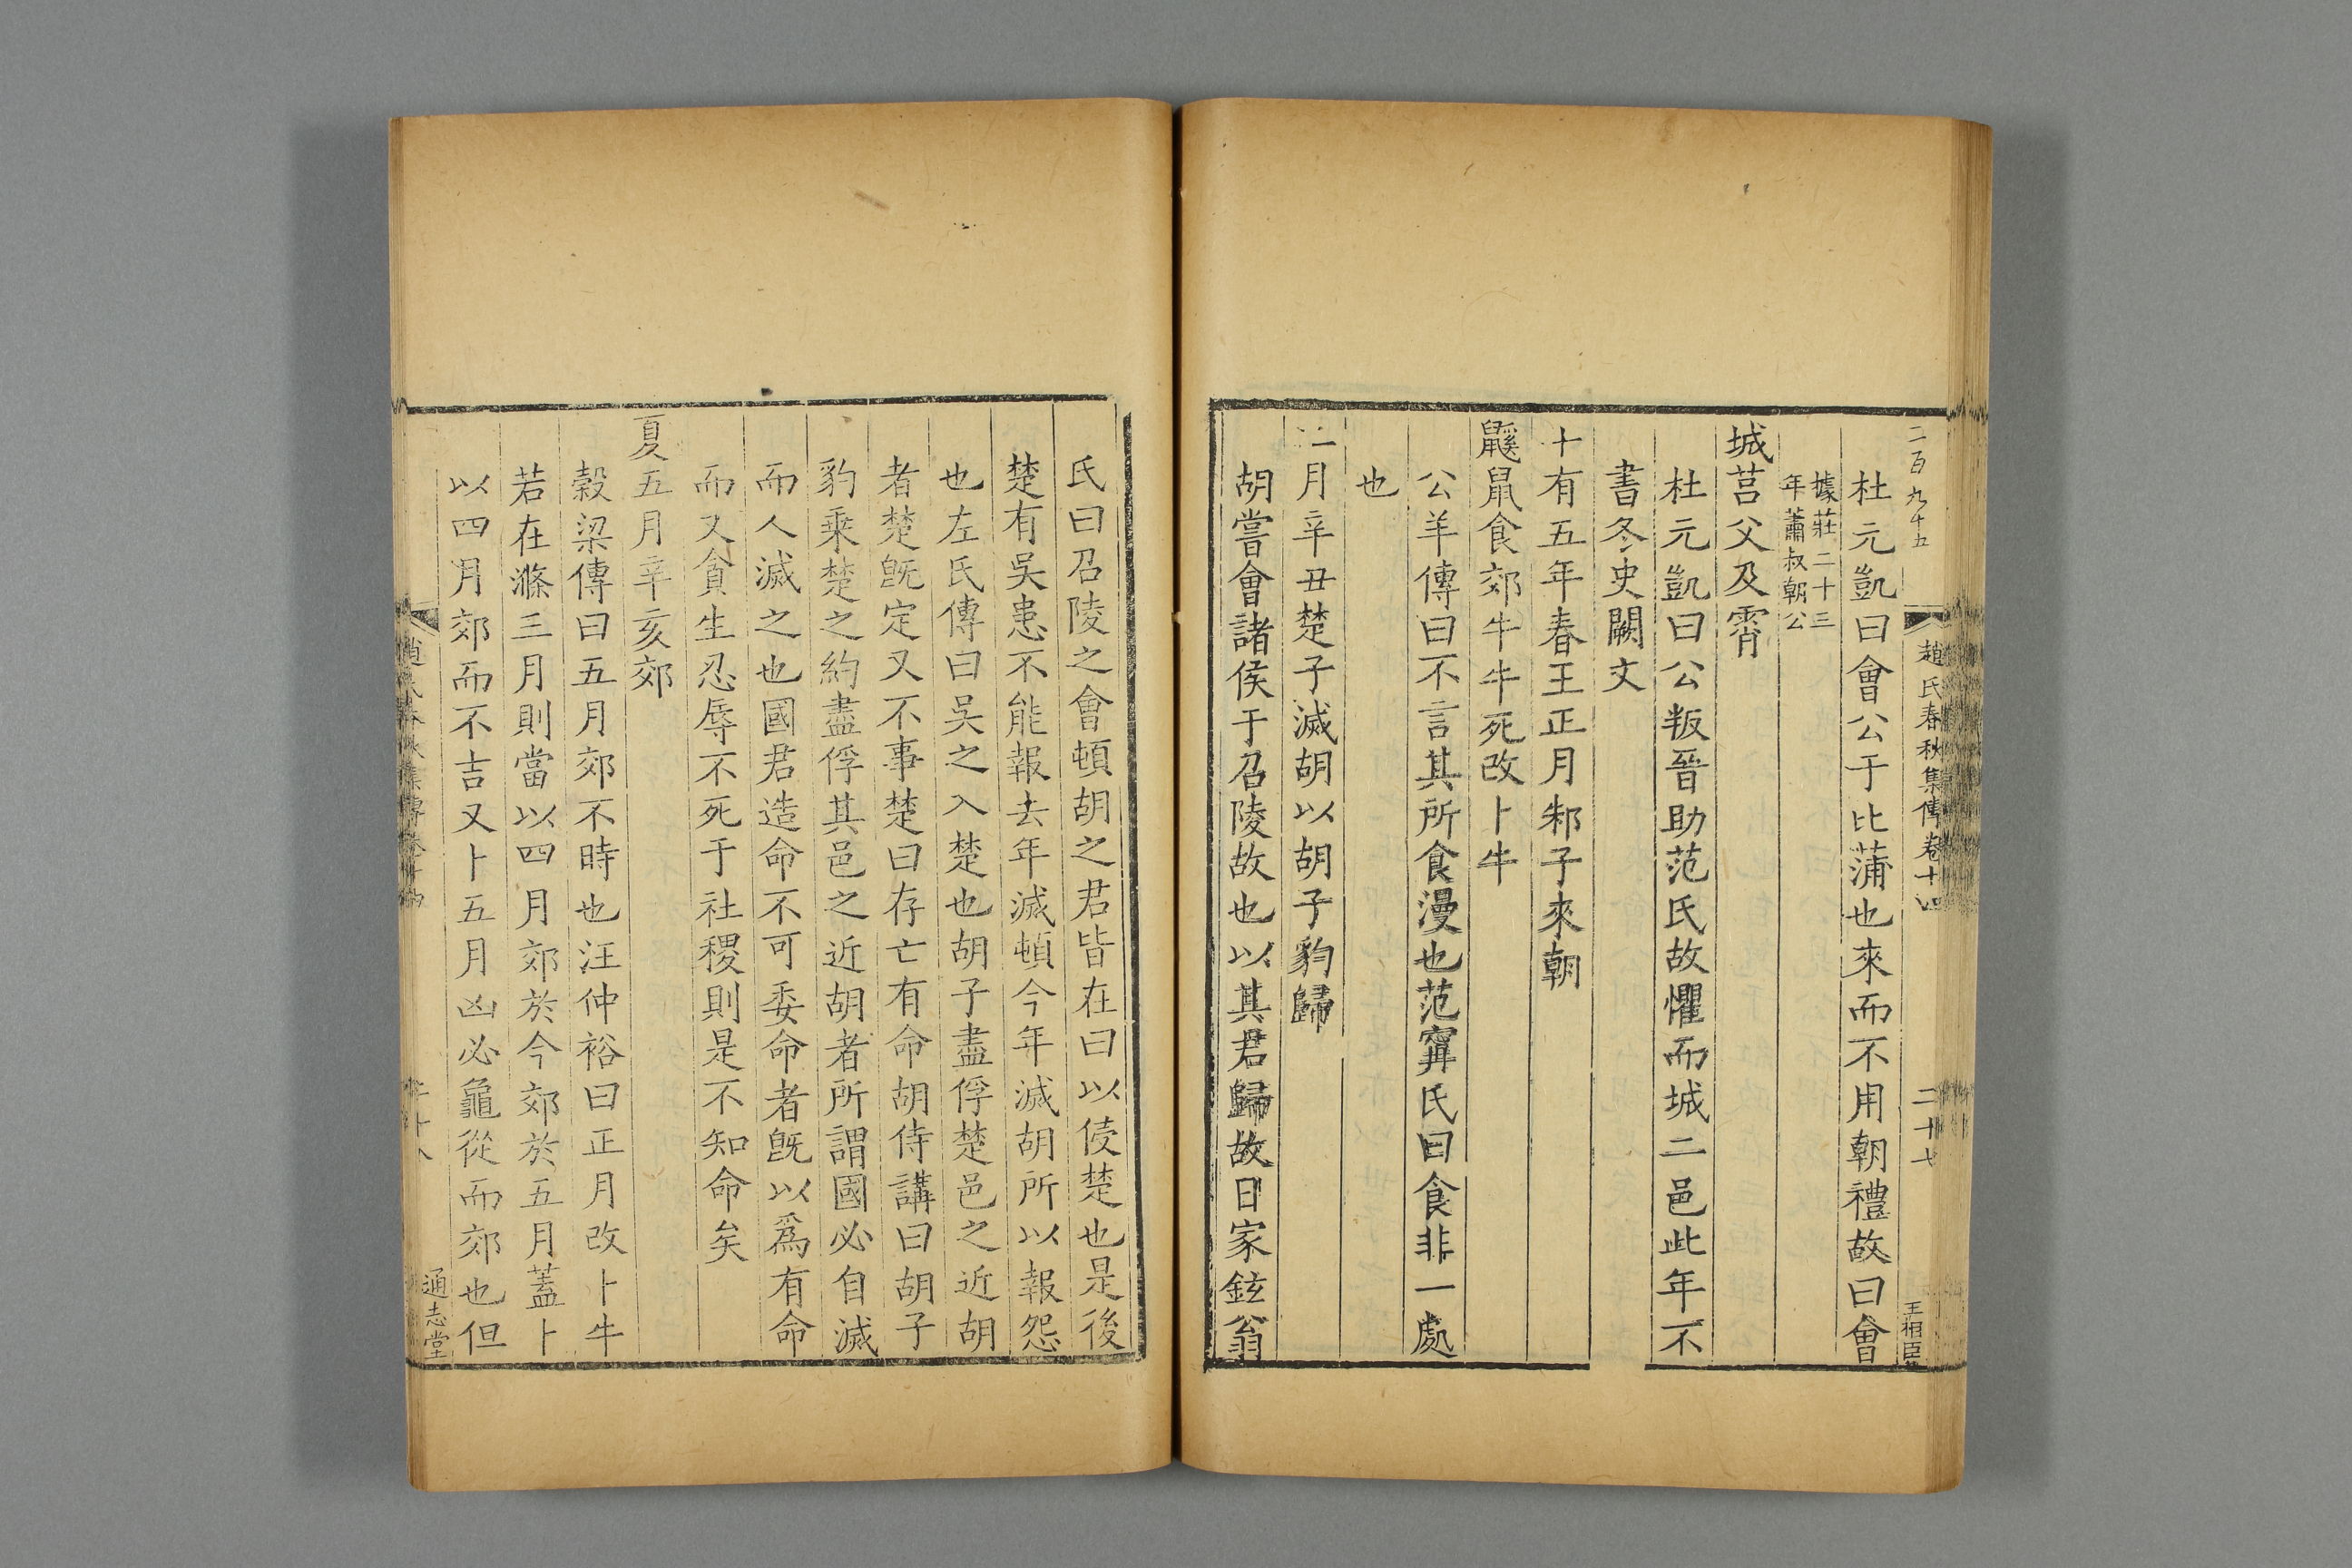 二百九十五
趙氏春秋集傳卷十四
二十七
王相臣
杜元凱曰會公于比蒲也來而不用朝禮故曰會
據莊二十三
年蕭叔朝公
城莒父及霄
杜元凱曰公叛晉助范氏故懼而城二邑此年不
書冬史闕文
十有五年春王正月邾子來朝
鼷鼠食郊牛牛死改卜牛
公羊傳曰不言其所食漫也范甯氏曰食非一處
也
二月辛丑楚子滅胡以胡子豹歸
胡嘗會諸侯于召陵故也以其君歸故日家鉉翁
氏曰召陵之會頓胡之君皆在曰以侵楚也是後
楚有吳患不能報去年滅頓今年滅胡所以報怨
也左氏傳曰吳之入楚也胡子盡俘楚邑之近胡
者楚旣定又不事楚曰存亡有命胡侍講曰胡子
豹乘楚之約盡俘其邑之近胡者所謂國必自滅
而人滅之也國君造命不可委命者旣以爲有命
而又貪生忍辱不死于社稷則是不知命矣
夏五月辛亥郊
榖梁傳曰五月郊不時也汪仲裕曰正月改卜牛
若在滌三月則當以四月郊於今郊於五月蓋卜
以四月郊而不吉又卜五月凶必龜從而郊也但
通志堂